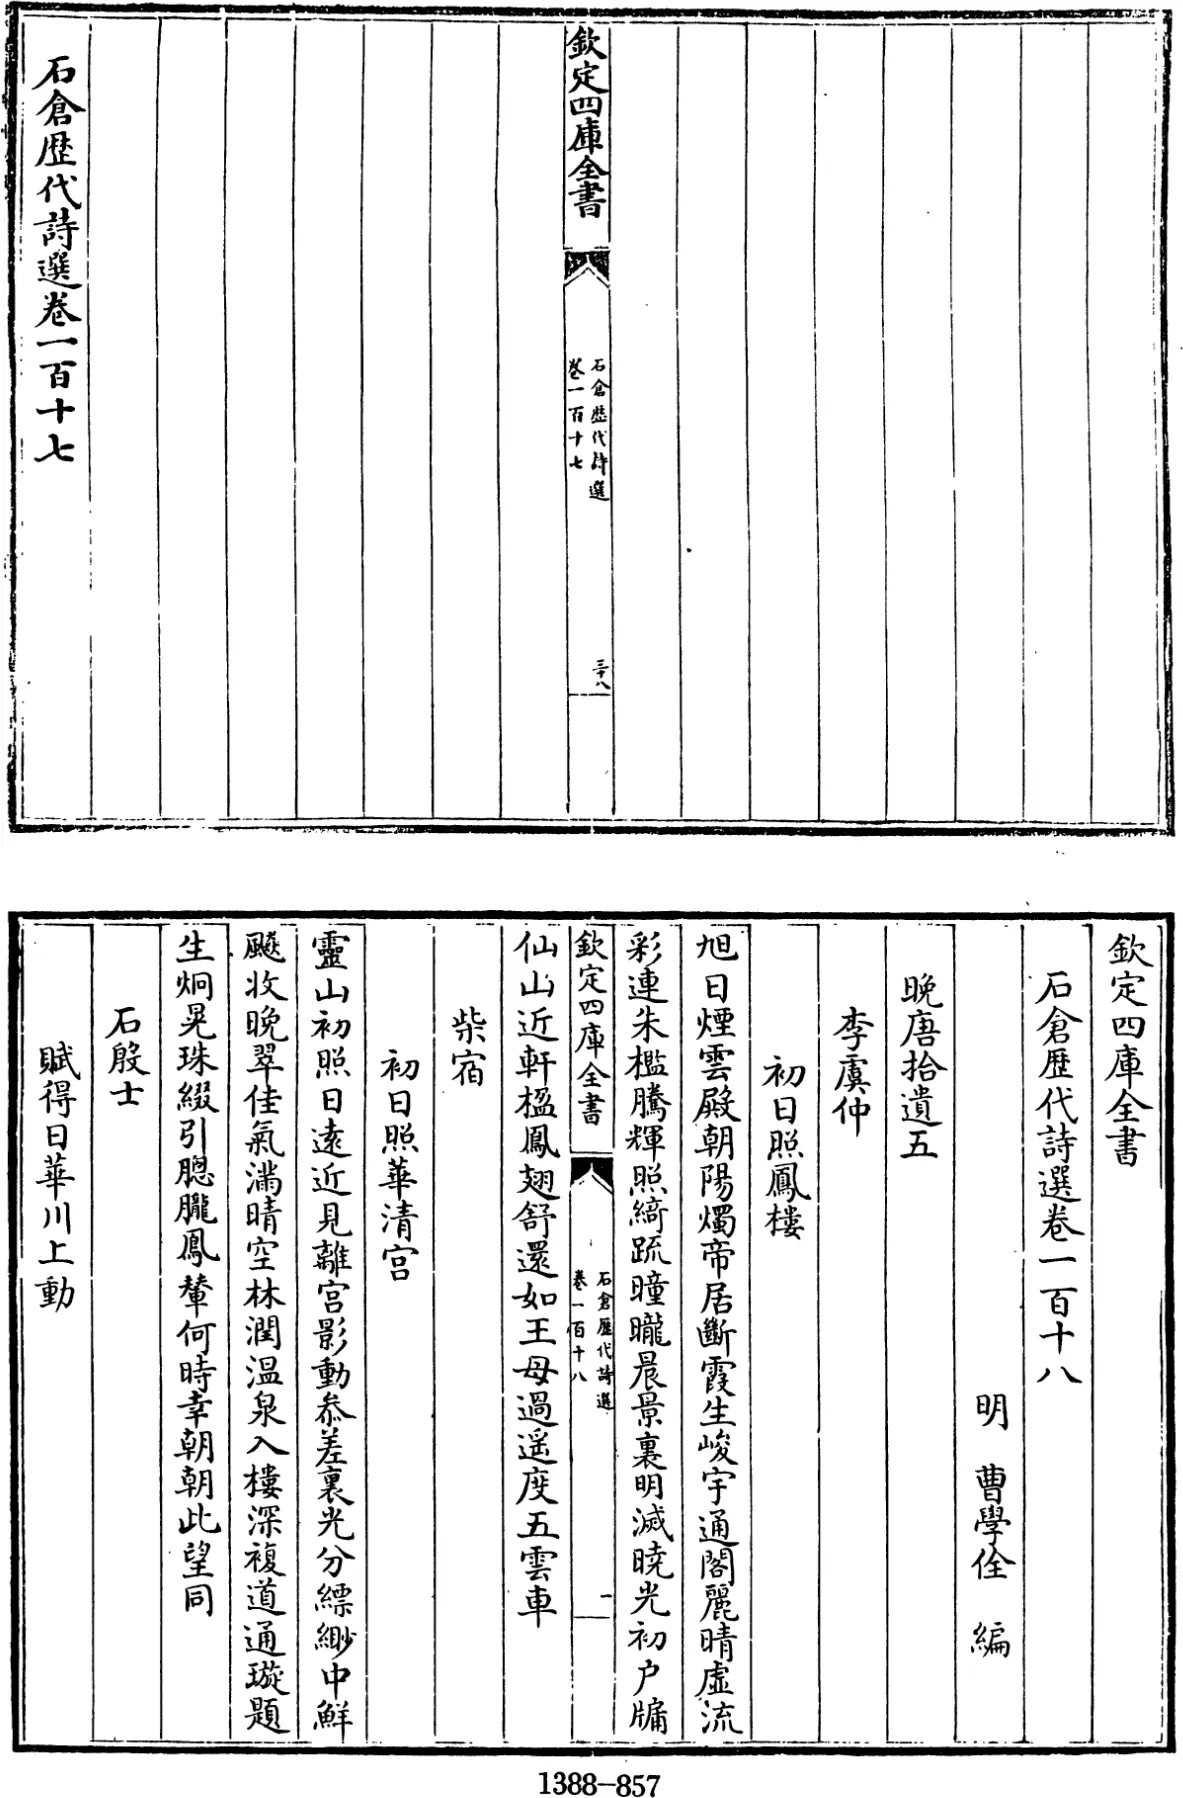 欽定四庫全書
石倉歷代詩選
卷一百十七
三十八
石倉歷代詩選卷一百十七
欽定四庫全書
石倉歷代詩選卷一百十八
明 曹學佺 編
晚唐拾遺五
李虞仲
初日照鳳樓
旭日煙雲殿朝陽燭帝居斷霞生峻宇通閣麗晴虛流
彩連朱檻騰輝照綺疏曈曨晨景裏明滅曉光初户牖
欽定四庫全書
石倉歷代詩選
卷一百十八
一
仙山近軒楹鳳翅舒還如王母過遥度五雲車
柴宿
初日照華清宮
靈山初照日遠近見離宮影動叅差裏光分縹緲中鮮
飈收晩翠佳氣滿晴空林潤温泉入樓深複道通璇題
生烱晃珠綴引朣朧鳳輦何時幸朝朝此望同
石殷士
賦得日華川上動
1388-857